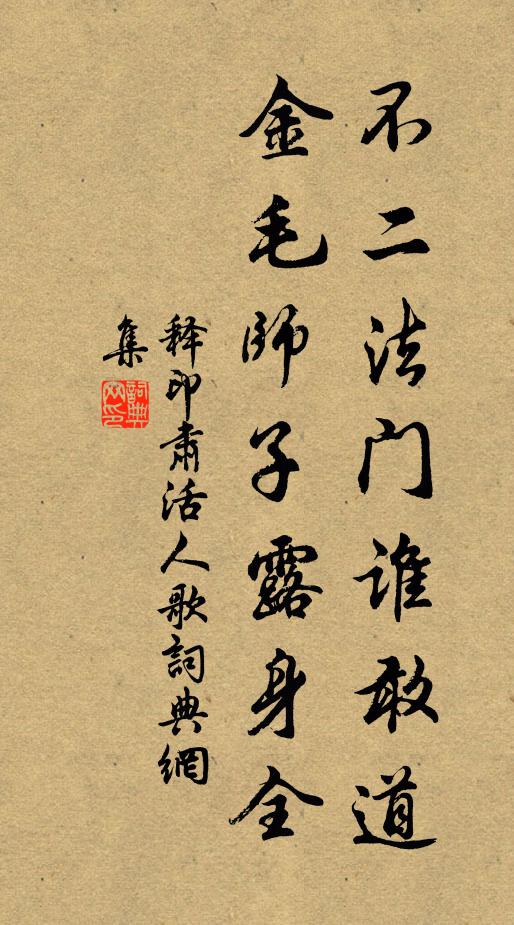 不二法门谁敢道
金毛师子露身全
释印肃活人歌詞典網
集
詞典網印